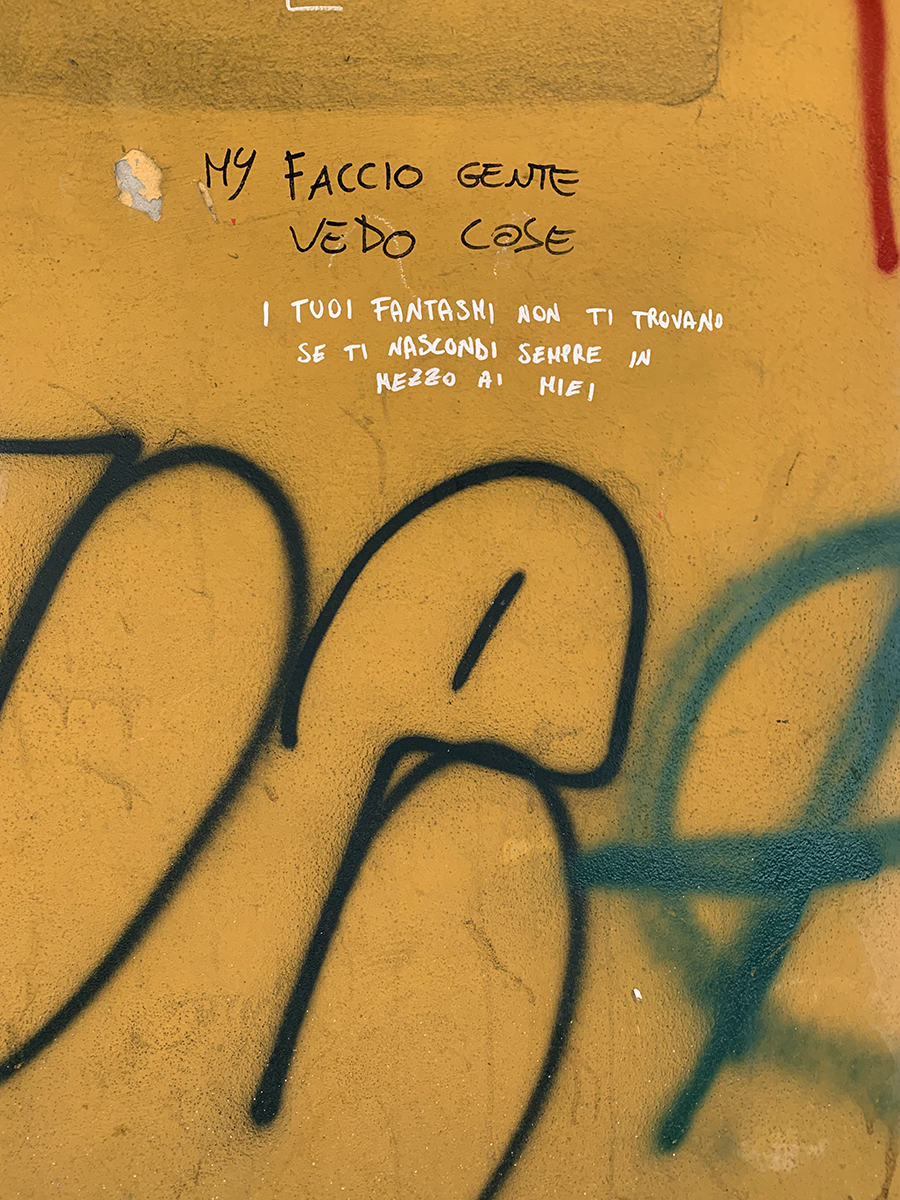 MY FACCIO GENTE
VEDO COSE
I TUOI FANTASMI NON TI TROVANO
SE TI NASCONDI SEMPRE IN
MEZZO AI MIEI